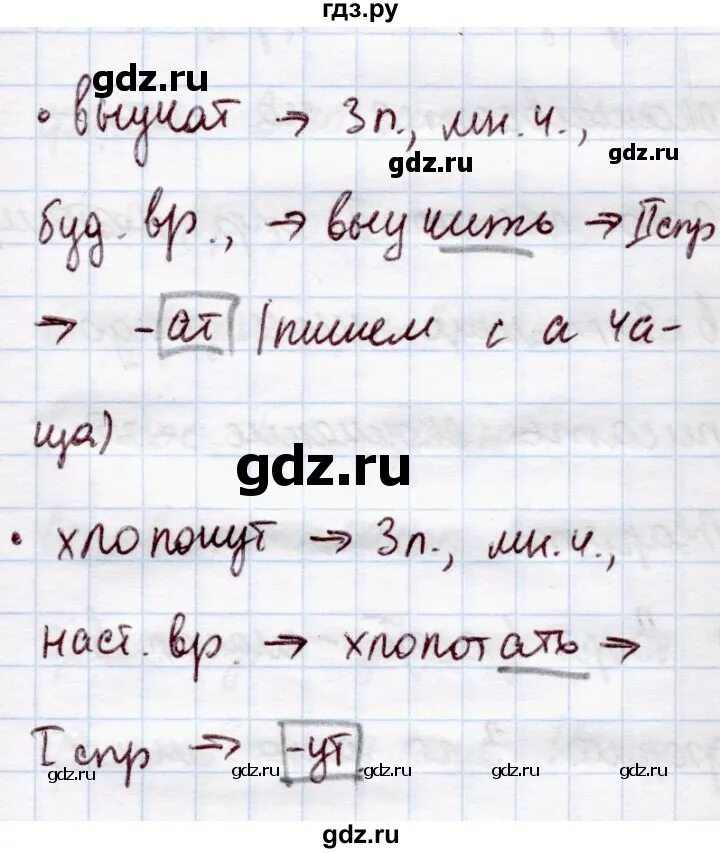 гдз.ру
gdz.ru
• выучат → 3 л., мн. ч.,
gdz.ru gdz.ru
буд. вр., → выучить → II спр
→ -ат (пишем с а ча-
ща)
gdz.ru
• хлопочут → 3 л., мн. ч.,
наст. вр. → хлопотать →
I спр → -ут
gdz.ru gdz.ru gdz.ru gdz.ru gdz.ru
gdz.ru